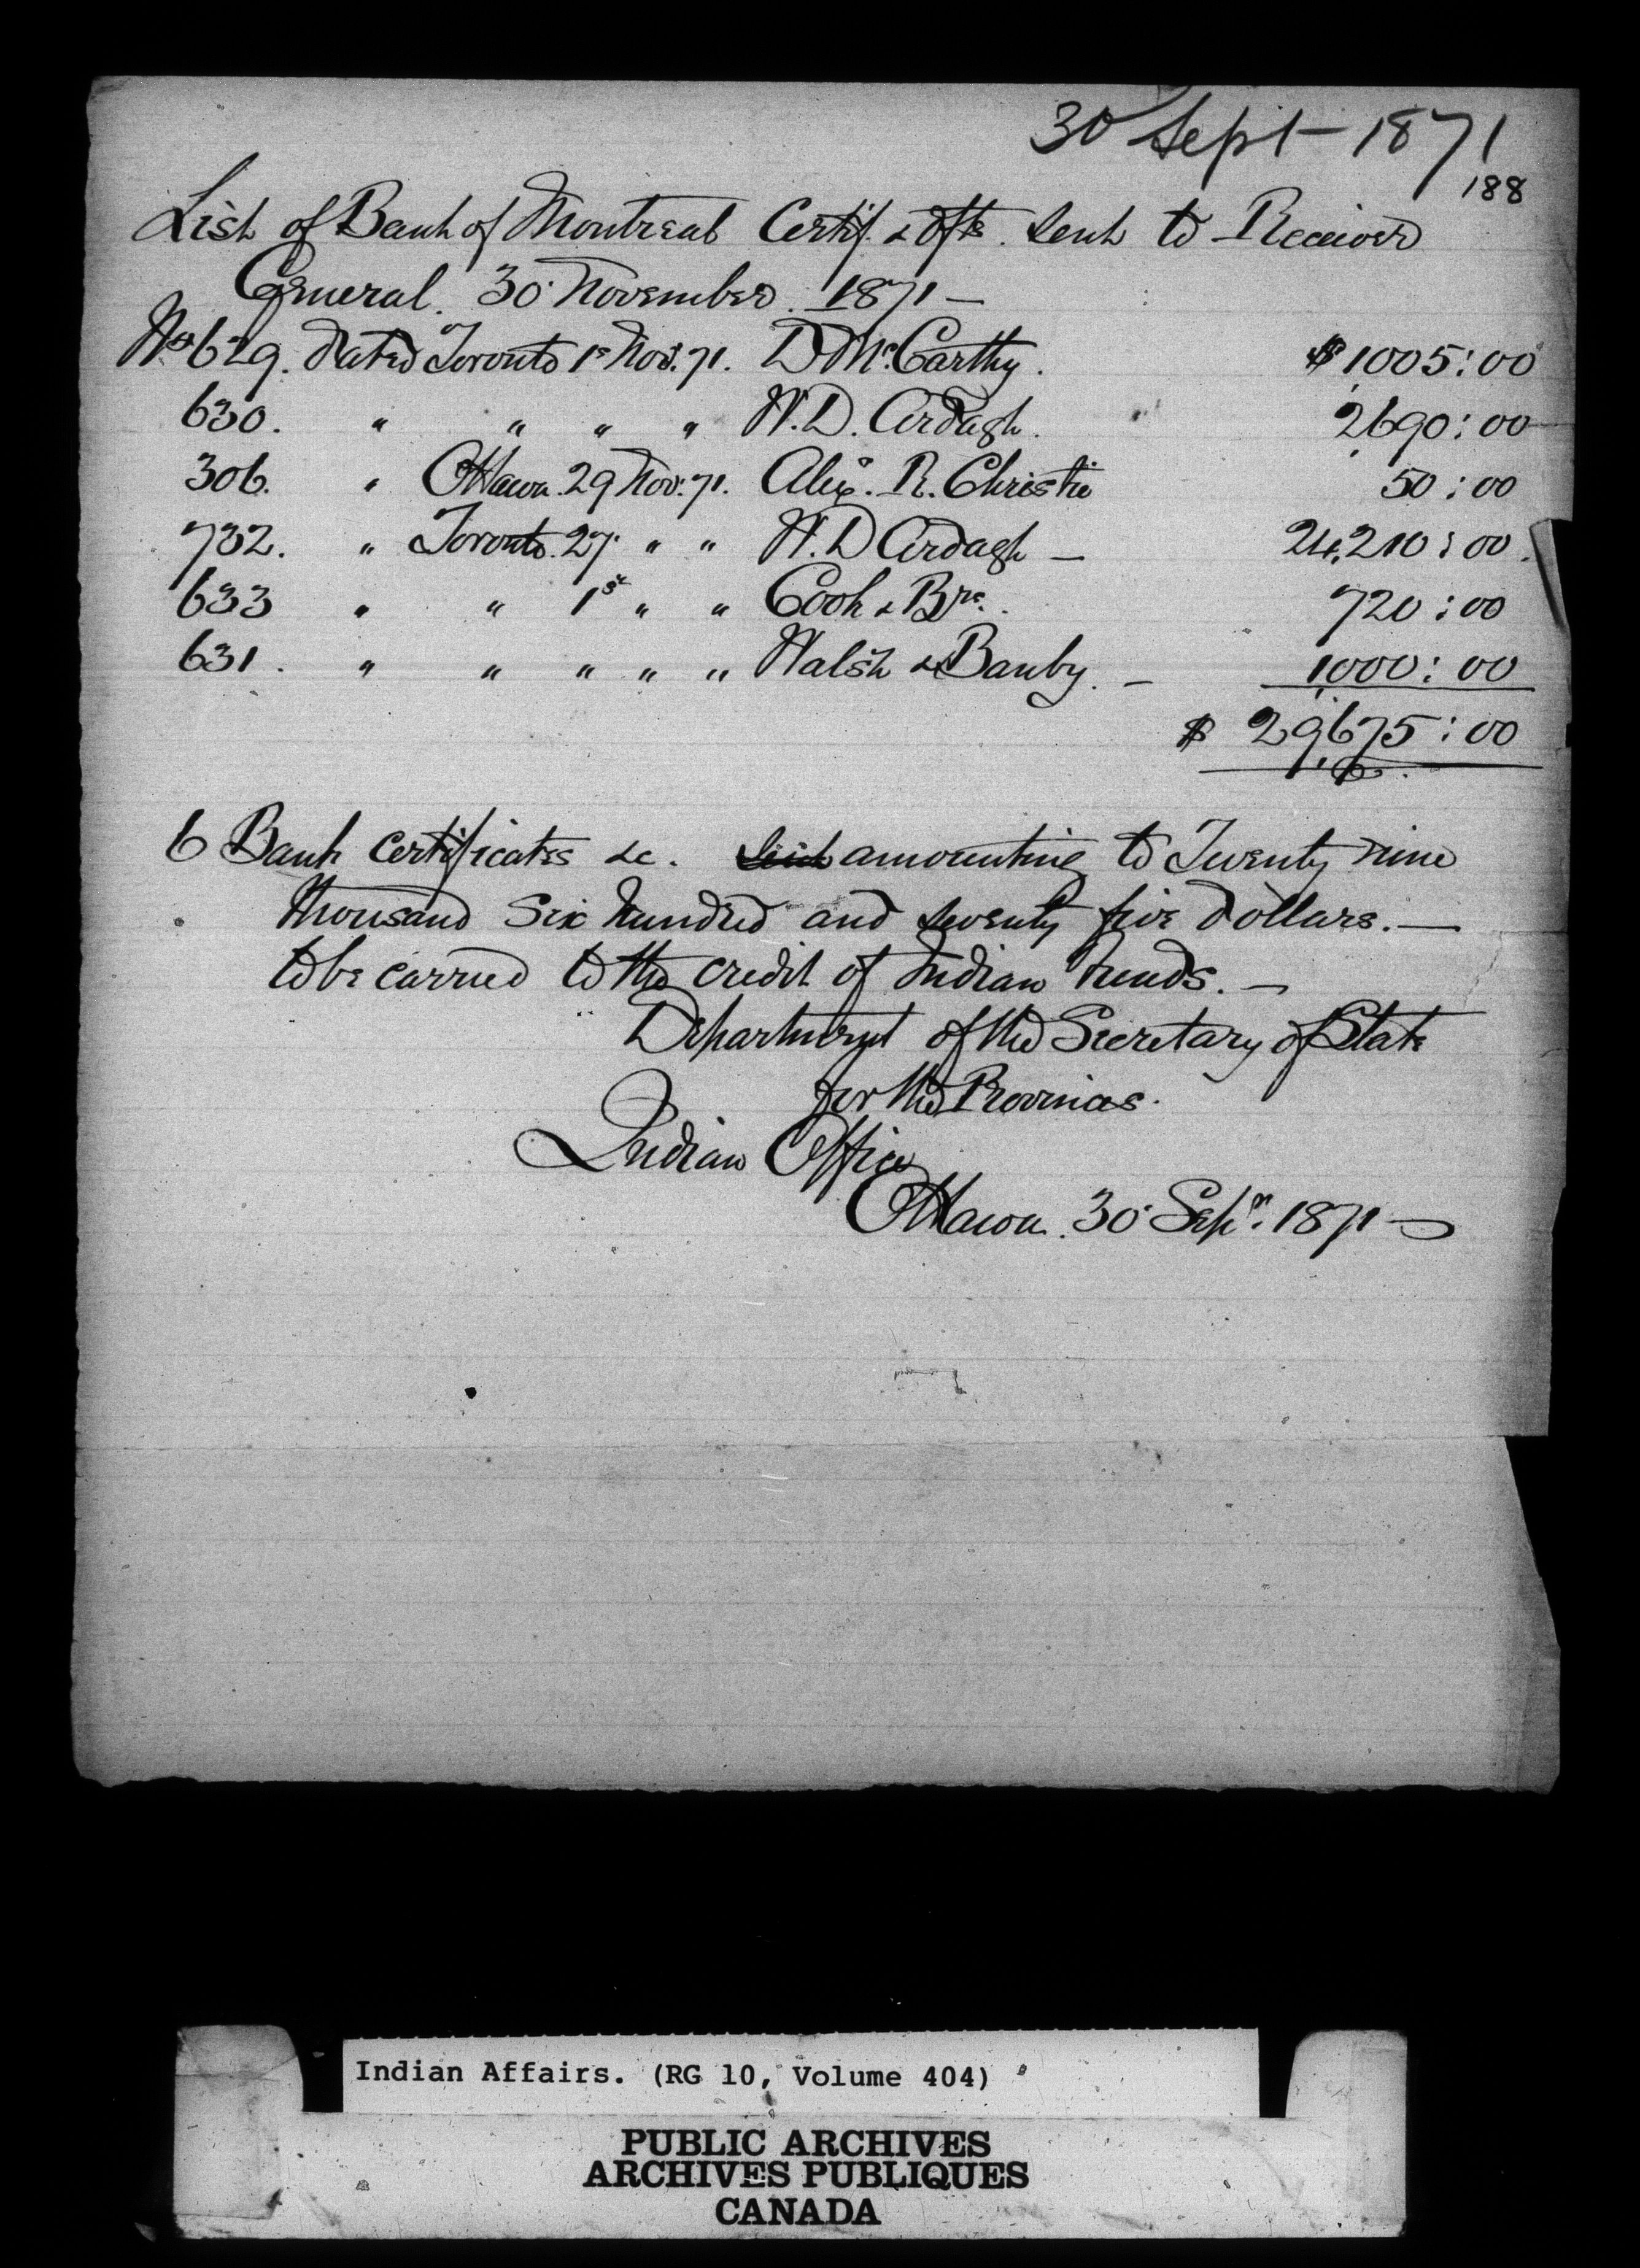 30 Sept - 1871
188
List of Bank of Montreal Certif. & Dfts. sent to Receiver
General. 30 November 1871 —
No 629. dated Toronto 1st Nov. 71. D McCarthy. $1005:00
630. " " " " W.D. Ardagh. 2690:00
306. " Ottawa 29 Nov. 71. Alex. R. Christie 50:00
732. " Toronto 27 " " W.D Ardagh — 24,210:00
633 " " 1st " " Cook & Brs. 720:00
631. " " " " " Walsh & Banby. — 1000:00
$ 29,675:00
6 Bank Certificates &c. amounting to Twenty nine
thousand Six hundred and seventy five dollars. —
to be carried to the credit of Indian Funds. —
Department of the Secretary of State
for the Provinces.
Indian Office
Ottawa. 30 Sepr. 1871 —
Indian Affairs. (RG 10, Volume 404)
PUBLIC ARCHIVES
ARCHIVES PUBLIQUES
CANADA